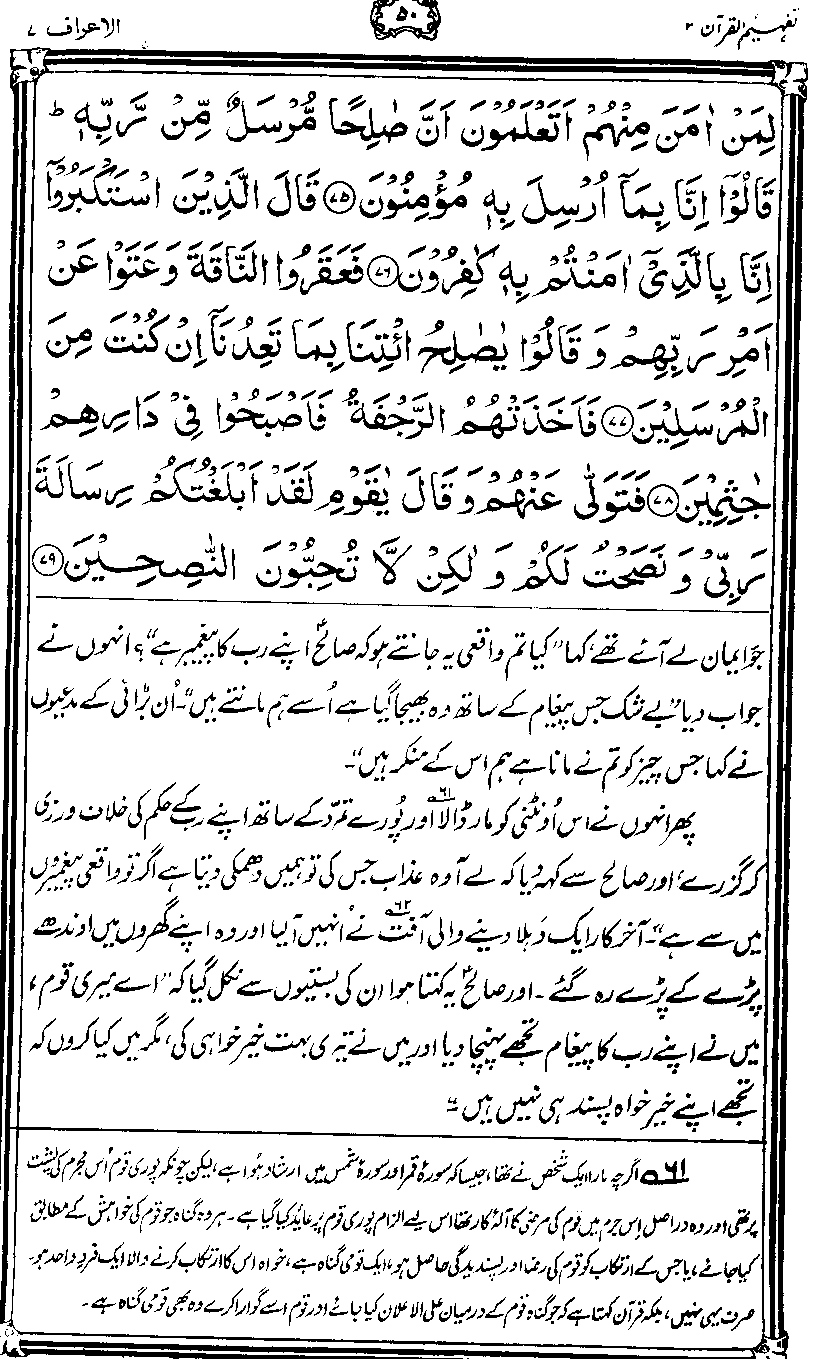 تفہیم القرآن ۲
۵۰
الاعراف ۷
لِمَنْ اٰمَنَ مِنْهُمْ اَتَعْلَمُوْنَ اَنَّ صٰلِحًا مُّرْسَلٌ مِّنْ رَّبِّهٖ ؕ
قَالُوْۤا اِنَّا بِمَاۤ اُرْسِلَ بِهٖ مُؤْمِنُوْنَ ﴿۷۵﴾ قَالَ الَّذِيْنَ اسْتَكْبَرُوْۤا
اِنَّا بِالَّذِيْۤ اٰمَنْتُمْ بِهٖ كٰفِرُوْنَ ﴿۷۶﴾ فَعَقَرُوا النَّاقَةَ وَعَتَوْا عَنْ
اَمْرِ رَبِّهِمْ وَقَالُوْا يٰصٰلِحُ ائْتِنَا بِمَا تَعِدُنَاۤ اِنْ كُنْتَ مِنَ
الْمُرْسَلِيْنَ ﴿۷۷﴾ فَاَخَذَتْهُمُ الرَّجْفَةُ فَاَصْبَحُوْا فِيْ دَارِهِمْ
جٰثِمِيْنَ ﴿۷۸﴾ فَتَوَلّٰى عَنْهُمْ وَقَالَ يٰقَوْمِ لَقَدْ اَبْلَغْتُكُمْ رِسَالَةَ
رَبِّيْ وَنَصَحْتُ لَكُمْ وَلٰكِنْ لَّا تُحِبُّوْنَ النّٰصِحِيْنَ ﴿۷۹﴾
جو ایمان لے آئے تھے، کہا "کیا تم واقعی یہ جانتے ہو کہ صالحؑ اپنے رب کا پیغمبر ہے"؟ انہوں نے
جواب دیا "بے شک جس پیغام کے ساتھ وہ بھیجا گیا ہے اُسے ہم مانتے ہیں"۔ اُن بڑائی کے مدعیوں
نے کہا جس چیز کو تم نے مانا ہے ہم اس کے منکر ہیں"۔
پھر انہوں نے اس اُونٹنی کو مار ڈالا ۶۱ اور پُورے تمرّد کے ساتھ اپنے رب کے حکم کی خلاف ورزی
کر گزرے، اور صالح سے کہہ دیا کہ لے آ وہ عذاب جس کی تو ہمیں دھمکی دیتا ہے اگر تو واقعی پیغمبروں
میں سے ہے"۔ آخر کار ایک دَہلا دینے والی آفت ۶۲ نے اُنہیں آ لیا اور وہ اپنے گھروں میں اوندھے
پڑے کے پڑے رہ گئے۔ اور صالحؑ یہ کہتا ہوا ان کی بستیوں سے نکل گیا کہ "اے میری قوم،
میں نے اپنے رب کا پیغام تجھے پہنچا دیا اور میں نے تیری بہت خیر خواہی کی، مگر میں کیا کروں کہ
تجھے اپنے خیر خواہ پسند ہی نہیں ہیں"۔
۶۱ اگرچہ مارا ایک شخص نے تھا، جیسا کہ سورۂ قمر اور سورۂ شمس میں ارشاد ہُوا ہے، لیکن چونکہ پوری قوم اُس مجرم کی پشت
پر تھی اور وہ دراصل اِس جرم میں قوم کی مرضی کا آلۂ کار تھا اس لیے الزام پوری قوم پر عائد کیا گیا ہے۔ ہر وہ گناہ جو قوم کی خواہش کے مطابق
کیا جائے، یا جس کے ارتکاب کو قوم کی رضا اور پسندیدگی حاصل ہو، ایک قومی گناہ ہے، خواہ اس کا ارتکاب کرنے والا ایک فردِ واحد ہو۔
صرف یہی نہیں، بلکہ قرآن کہتا ہے کہ جو گناہ قوم کے درمیان علی الاعلان کیا جائے اور قوم اسے گوارا کرے وہ بھی قومی گناہ ہے۔